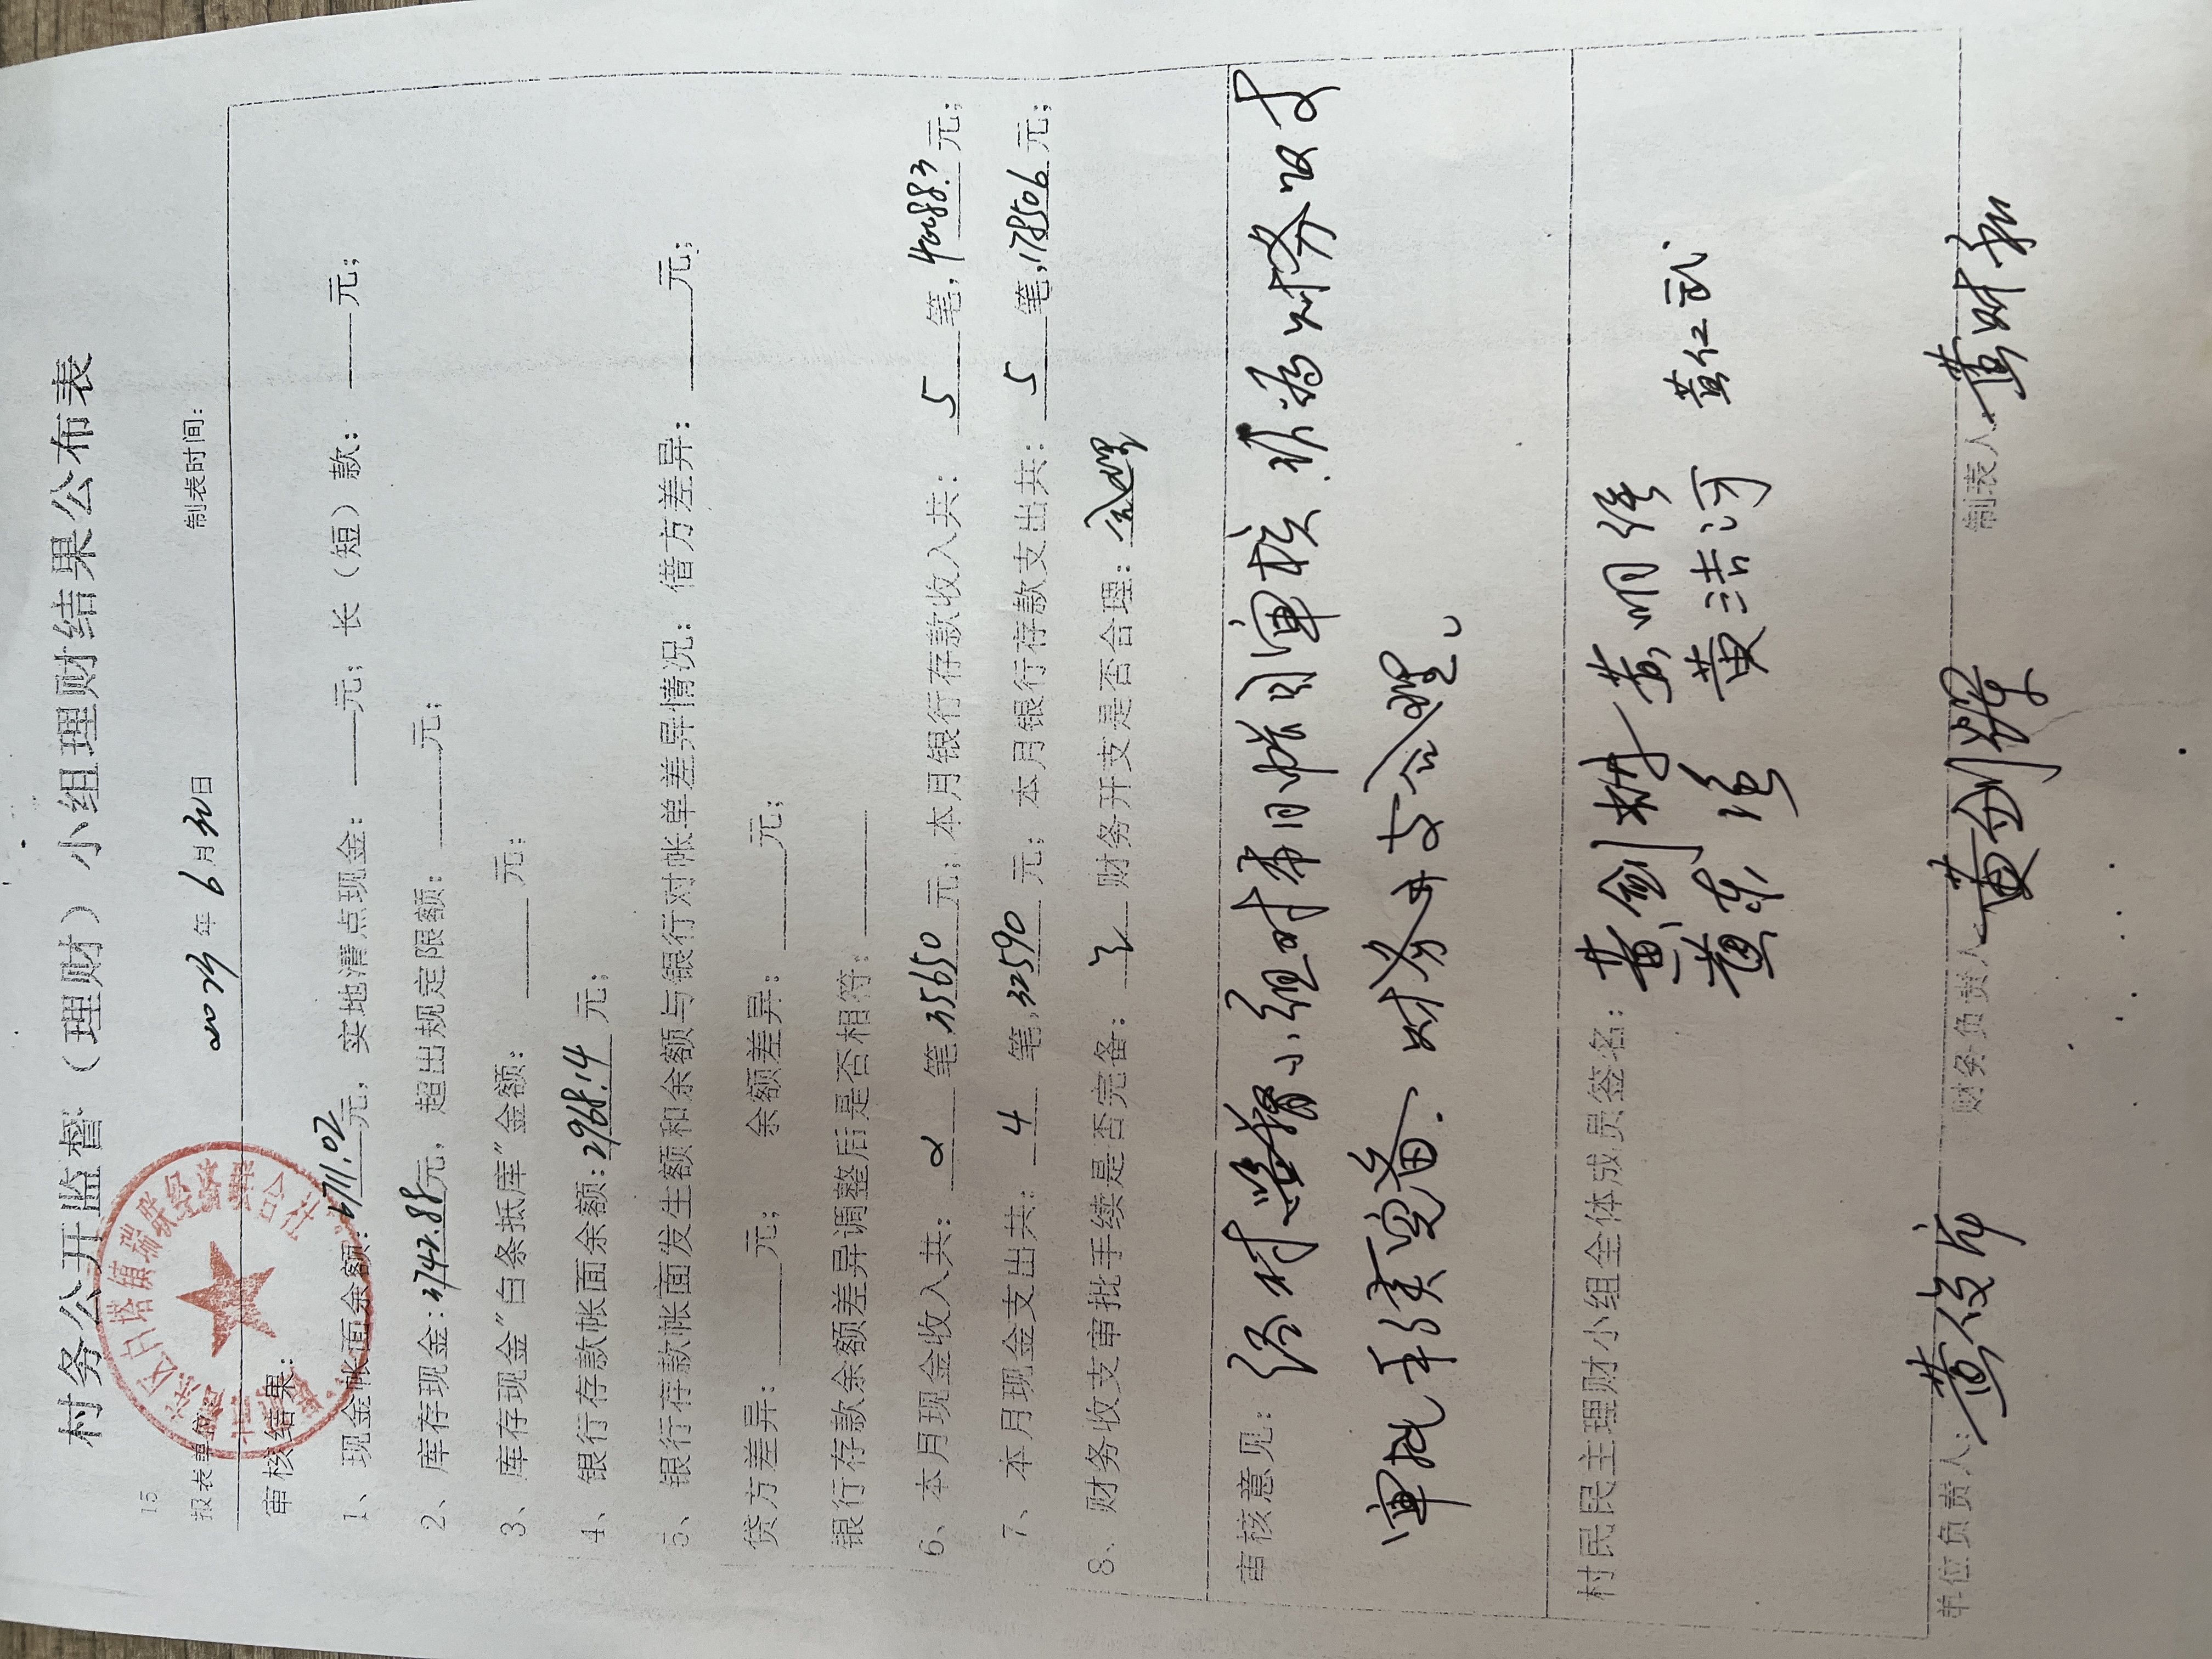 村务公开监督（理财）小组理财结果公布表
15
报表单位： 2023年6月30日 制表时间：
审核结果：
1、现金帐面余额：6711.02元，实地清点现金：元；长（短）款：元；
2、库存现金：3742.88元，超出规定限额：元；
3、库存现金“白条抵库”金额：元；
4、银行存款帐面余额：2968.14元；
5、银行存款帐面发生额和余额与银行对帐单差异情况：借方差异：元；
贷方差异：元；余额差异：元；
银行存款余额差异调整后是否相符：
6、本月现金收入共：2笔，35650元；本月银行存款收入共：5笔，40088.3元；
7、本月现金支出共：4笔，32590元；本月银行存款支出共：5笔，178506元；
8、财务收支审批手续是否完备：是 财务开支是否合理：合理
审核意见：经村监督小组对本月帐目审核，认为财务收支
审批手续完备，财务开支合理。
村民民主理财小组全体成员签名：黄剑林 黄明维 黄仁武
黄东 黄洁河
单位负责人：黄俊 财务负责人 黄剑辉 制表人 黄财